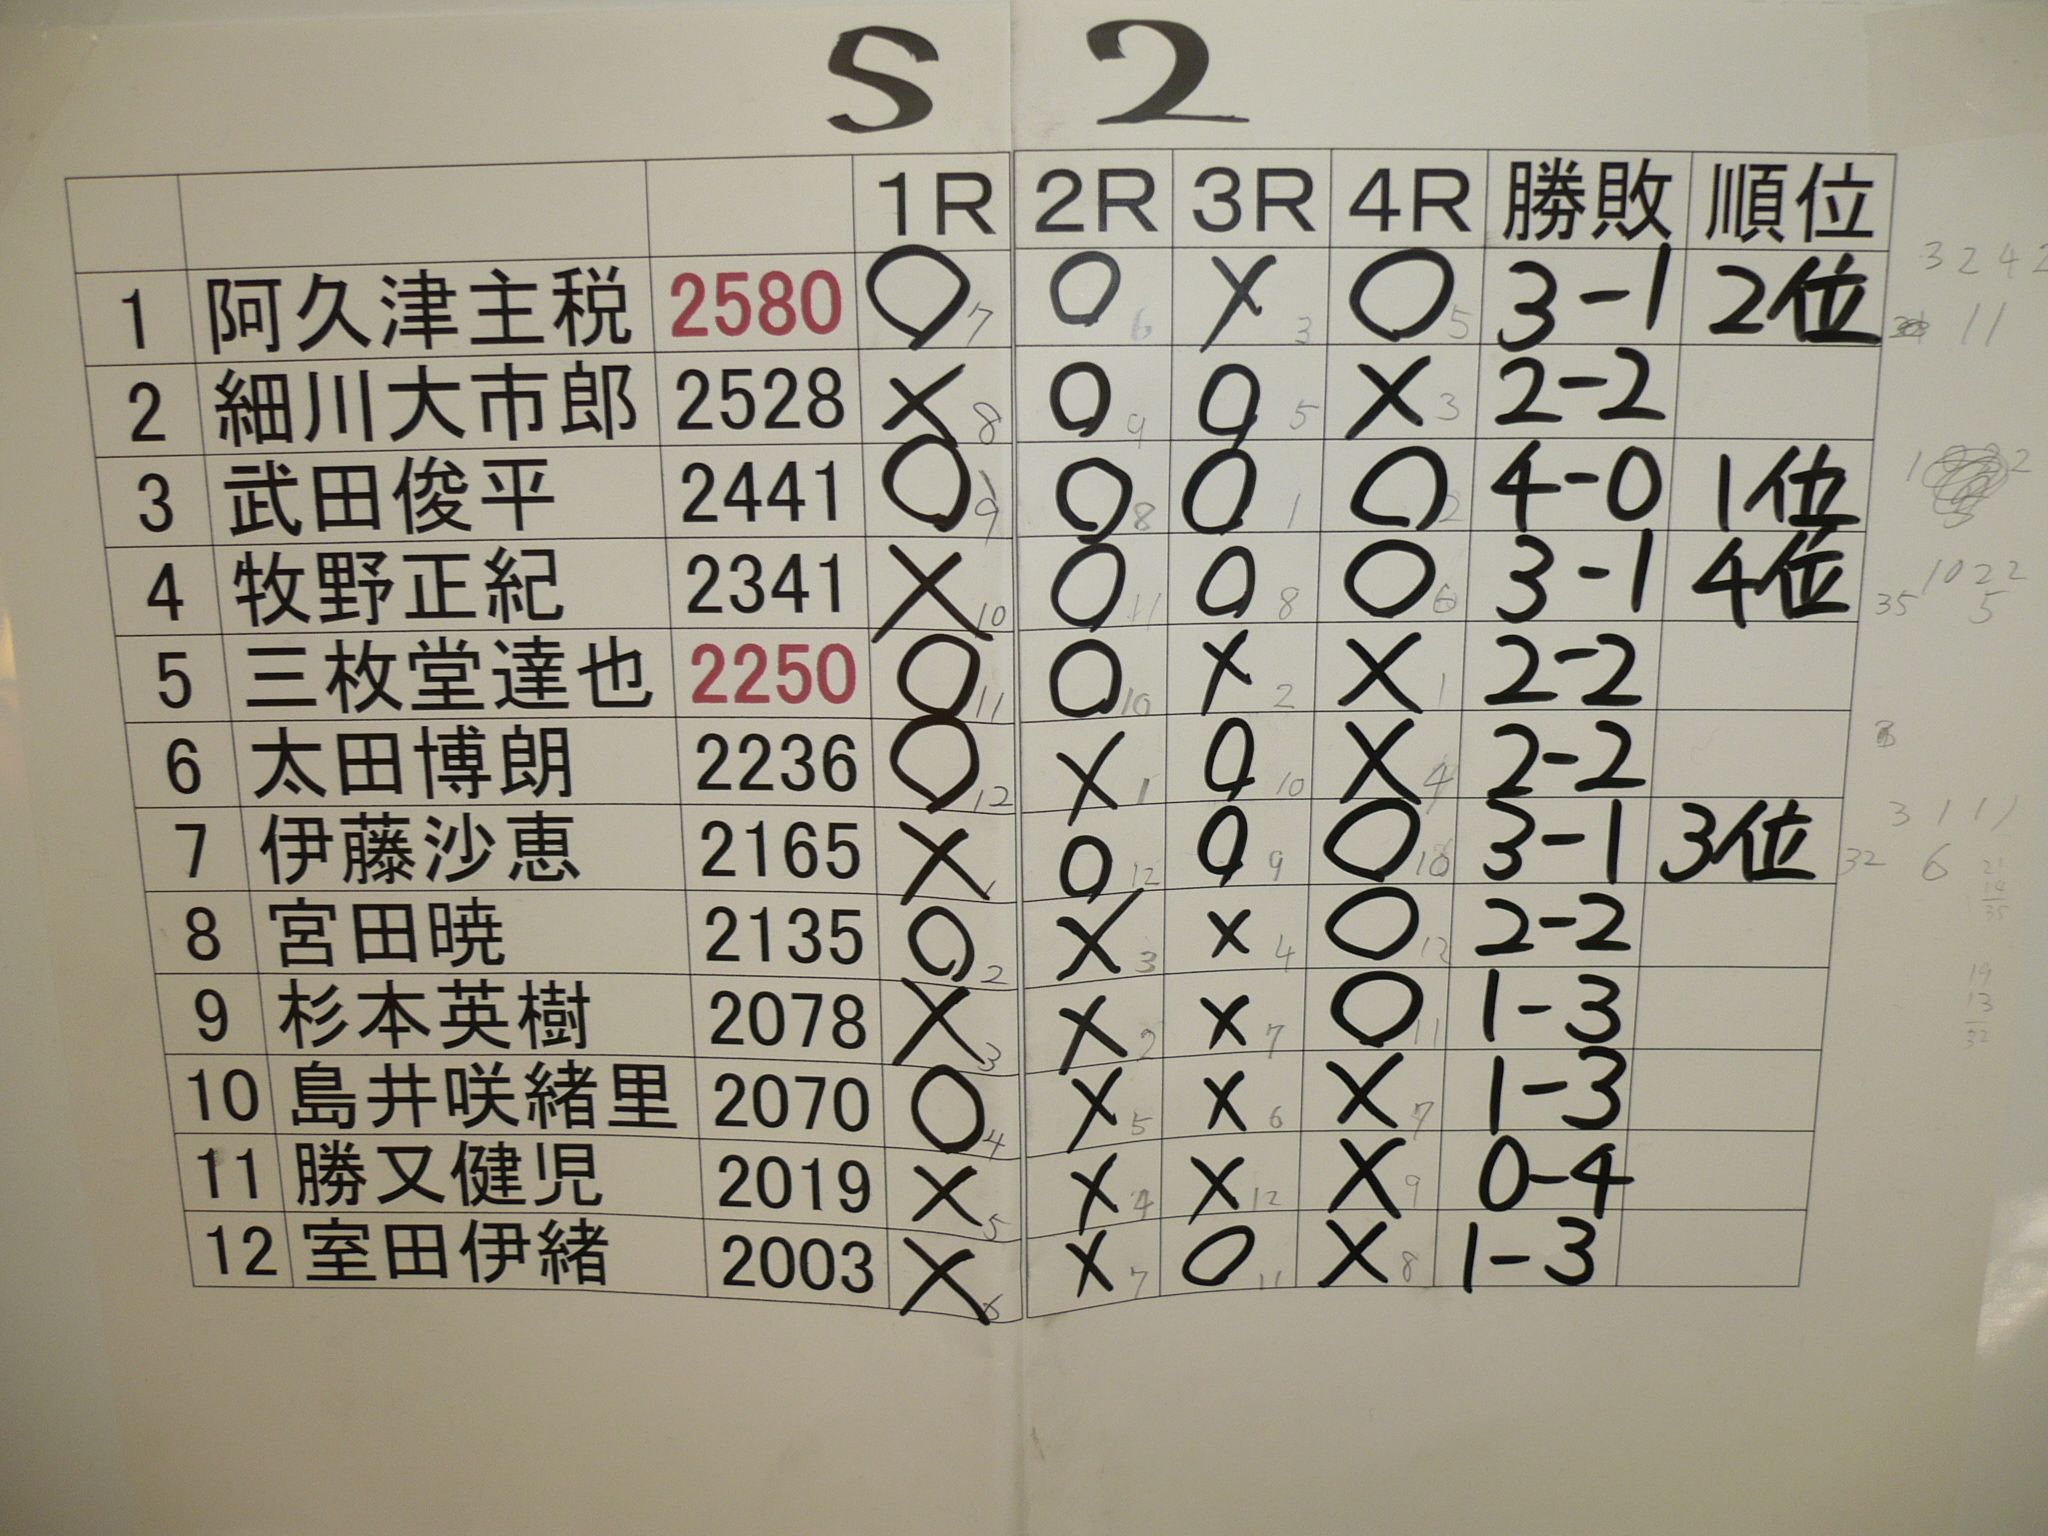 S 2
1R 2R 3R 4R 勝敗 順位
1 阿久津主税 2580 ○7 ○6 ×3 ○5 3-1 2位
2 細川大市郎 2528 ×8 ○9 ○5 ×3 2-2
3 武田俊平 2441 ○9 ○8 ○1 ○2 4-0 1位
4 牧野正紀 2341 ×10 ○11 ○8 ○6 3-1 4位
5 三枚堂達也 2250 ○11 ○10 ×2 ×1 2-2
6 太田博朗 2236 ○12 ×1 ○10 ×4 2-2
7 伊藤沙恵 2165 ×1 ○12 ○9 ○10 3-1 3位
8 宮田暁 2135 ○2 ×3 ×4 ○12 2-2
9 杉本英樹 2078 ×3 ×2 ×7 ○11 1-3
10 島井咲緒里 2070 ○4 ×5 ×6 ×7 1-3
11 勝又健児 2019 ×5 ×4 ×12 ×9 0-4
12 室田伊緒 2003 ×6 ×7 ○11 ×8 1-3